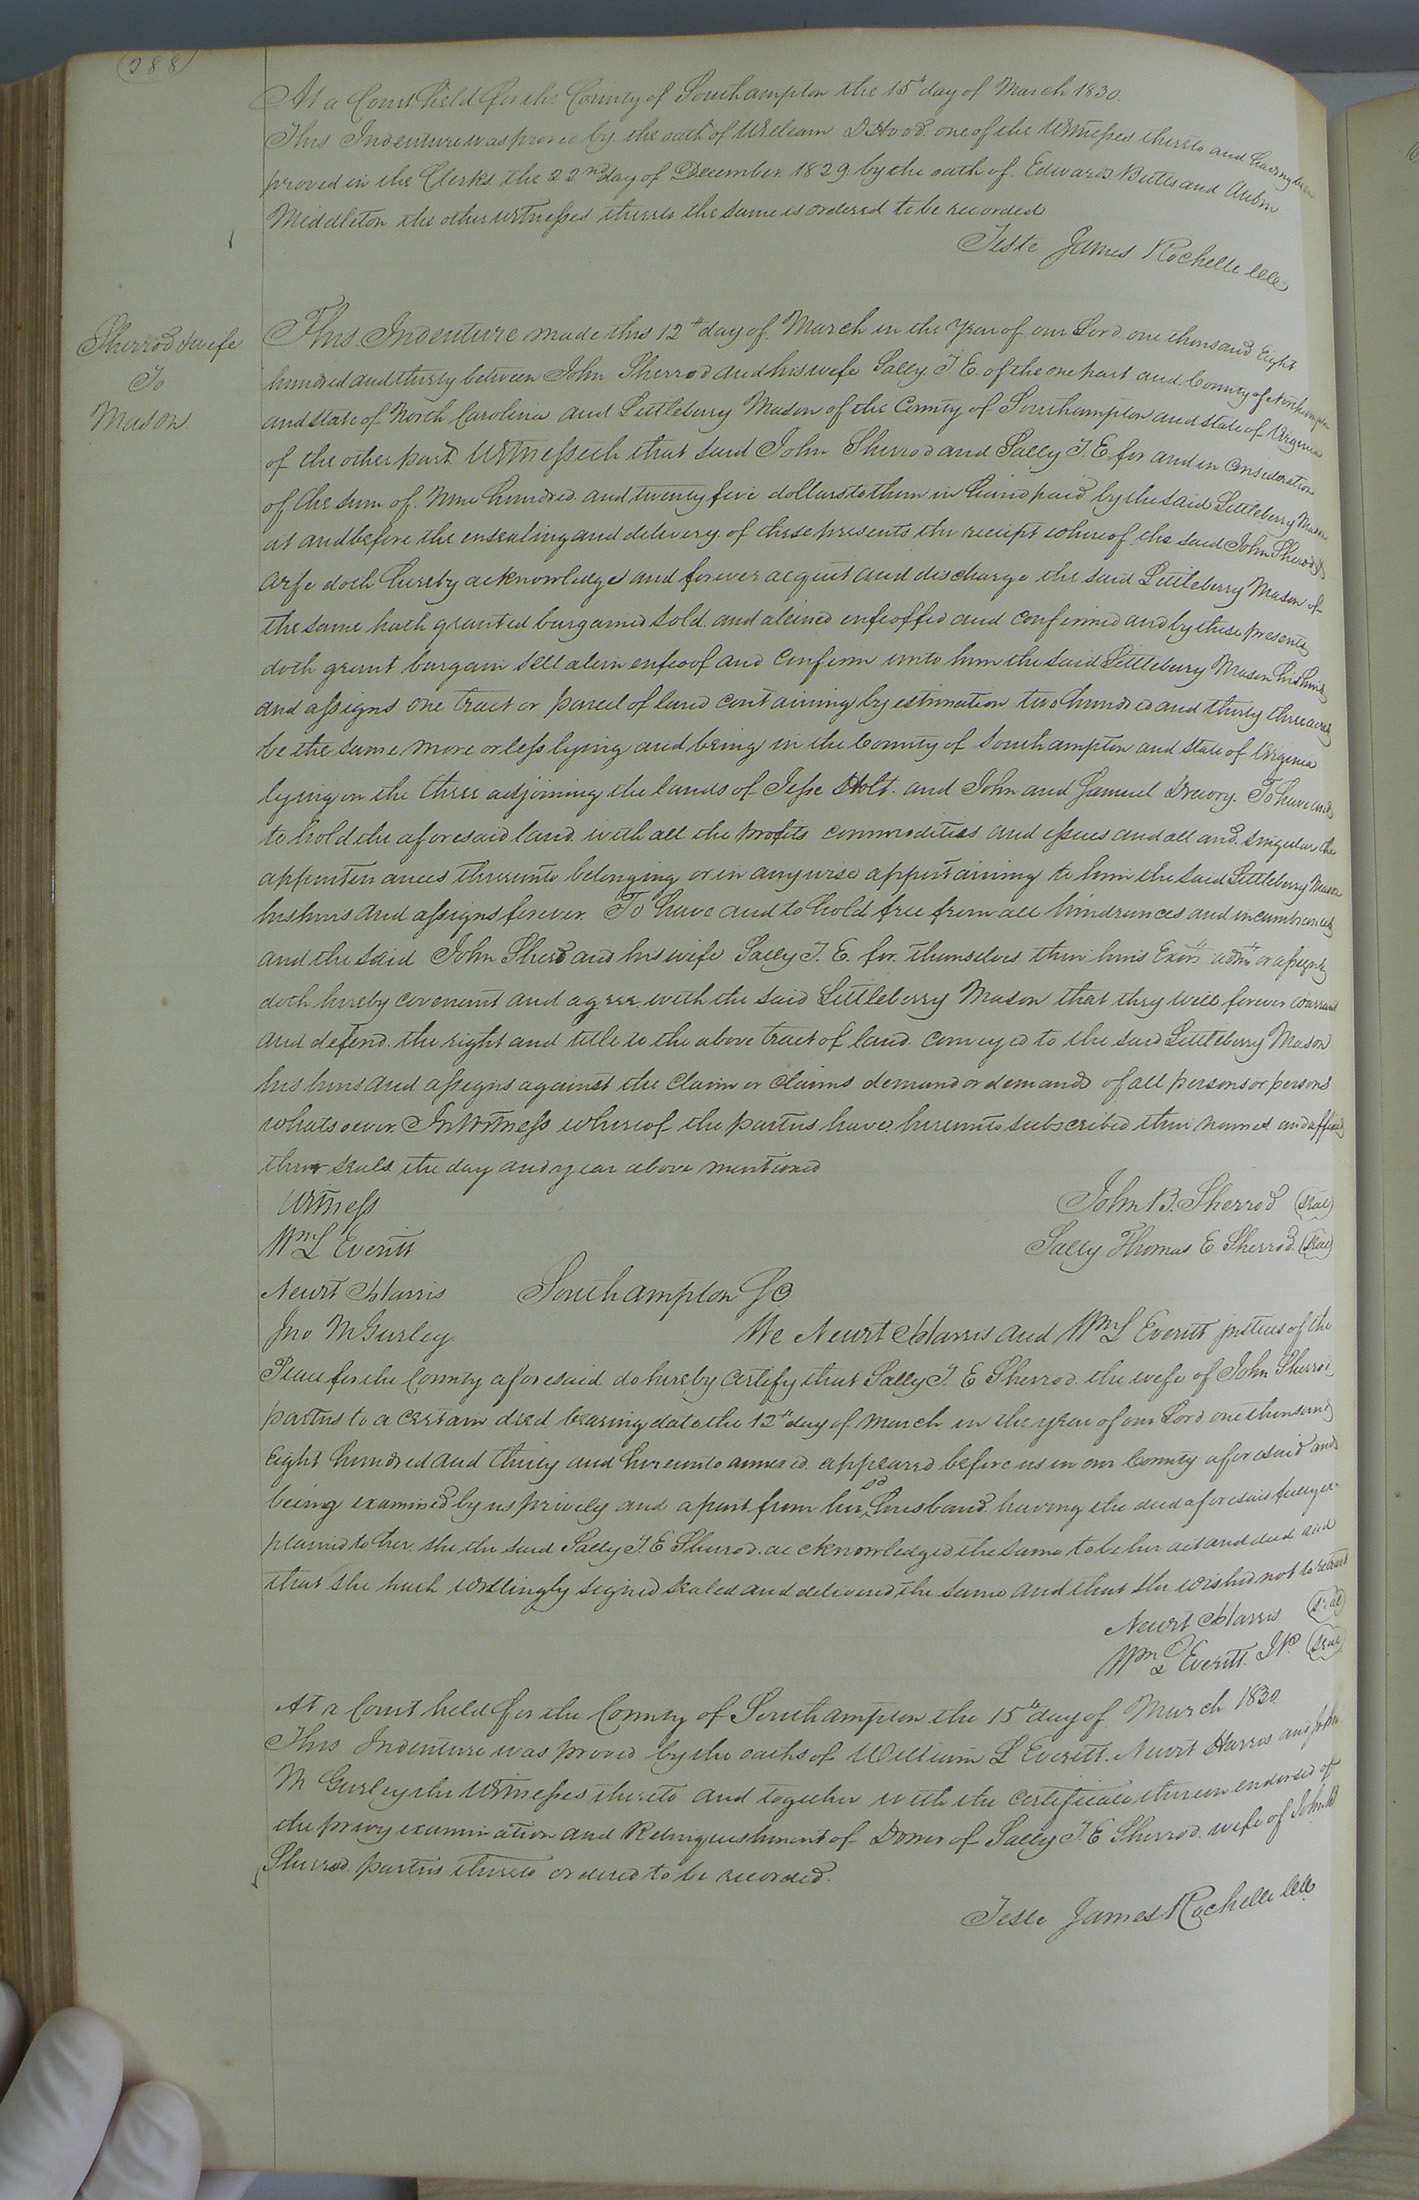 288
At a Court held for the County of Southampton the 15th day of March 1830.
This Indenture was proved by the oath of William D Hood one of the Witnesses thereto and having been
proved in the Clerks the 22nd day of December 1829 by the oath of Edward Butts and
Middleton the other witnesses thereto the same is ordered to be recorded
Teste James Rochelle Clk
Sherrod & wife
To
Mason
This Indenture made this 12th day of March in the Year of our Lord one thousand Eight
hundred and thirty between John Sherrod and his wife Sally T. E. of the one part and County of Northampton
and state of North Carolina and Littleberry Mason of the County of Southampton and state of Virginia
of the other part Witnesseth that said John Sherrod and Sally T. E for and in consideration
of the sum of Nine hundred and twenty five dollars to them in hand paid by the said Littleberry Mason
at and before the ensealing and delivery of these presents the receipt whereof the said John Sherrod &
wife doth hereby acknowledge and forever acquit and discharge the said Littleberry Mason of
the same hath granted bargained sold and aleined enfeoffed and confirmed and by these presents
doth grant bargain sell alein enfeoof and confirm unto him the said Littleberry Mason his heirs
and assigns one tract or parcel of land containing by estimation two hundred and thirty three acres
be the same more or less lying and being in the County of Southampton and state of Virginia
lying on the three adjoining the lands of Jesse Holt and John and Samuel Drewry. To have and
to hold the aforesaid land with all the profits commodities and issues and all and singular the
appurtenances thereunto belonging or in any wise appertaining to him the said Littleberry Mason
his heirs and assigns forever. To have and to hold free from all hindrances and incumbrances
and the said John Sherod and his wife Sally T. E. for themselves their heirs Exors admrs or assigns
doth hereby covenant and agree with the said Littleberry Mason that they will forever warrant
and defend the right and title to the above tract of land conveyed to the said Littleberry Mason
his heirs and assigns against the claim or claims demand or demands of all persons or persons
whatsoever. In Witness whereof the parties have hereunto subscribed their names and affixed
their seals the day and year above mentioned
Witness
John B. Sherrod (seal)
Wm L Everitt
Sally Thomas E. Sherrod (seal)
Newit Harris Southampton
Jno M Gurley We Newit Harris and Wm L Everitt justices of the
Peace for the County aforesaid do hereby certify that Sally T. E Sherrod the wife of John Sherrod
parties to a certain deed bearing date the 12th day of March in the year of our Lord one thousand
Eight hundred and thirty and hereunto annexed appeared before us in our County aforesaid and
being examined by us privily and apart from her sd husband having the deed aforesaid fully ex-
plained to her she the said Sally T E Sherrod acknowledged the same to be her act and deed and
that she hath willingly signed sealed and delivered the same and that she wished not to retract
Newit Harris (seal)
Wm L Everitt J.P. (seal)
At a Court held for the County of Southampton the 15th day of March 1830
This Indenture was proved by the oaths of William L Everitt. Newit Harris and John
M Gurley the Witnesses thereto and together with the certificate thereon endorsed of
the privy examination and Relinquishment of Dower of Sally T. E Sherrod wife of John B
Sherrod parties thereto ordered to be recorded.
Teste James Rochelle Clk